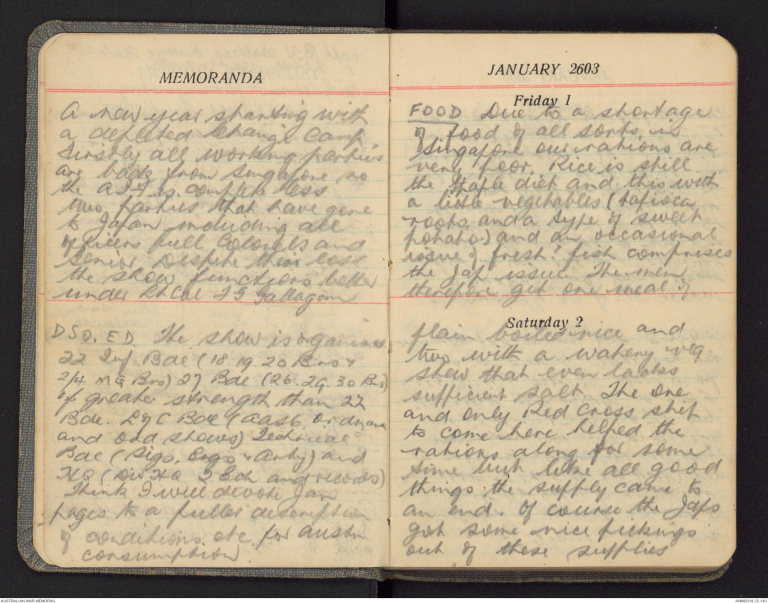 MEMORANDA
A new year starting with
a depleted Changi Camp
Firstly all working parties
are back from Singapore so
the AIF is complete less
two parties that have gone
to Japan including all
officers full Colonels and
senior Despite this loss
the show functions better
under Lt Col F G Gallagan
DSO. ED The show is organised
22 Inf Bde (18 19 20 Bns &
2/4 MG Bn) 27 Bde (26. 29. 30 Bns)
of greater strength than 22
Bde. AASC Ordnance
and odd shows) Technical
Bde (Sigs. Engs & Arty) and
HQ (Div HQ 2 Ech and records)
Think I will devote Jan
pages to a fuller description
of conditions etc for Austn
consumption.
JANUARY 2603
Friday 1
FOOD Due to a shortage
of food of all sorts in
Singapore our rations are
very poor. Rice is still
the staple diet and this with
a little vegetables (tapioca
roots and a type of sweet
potato) and an occasional
issue of fresh fish comprises
the Jap issue The men
therefore get one meal of
Saturday 2
plain boiled rice and
two with a watery veg
stew that even lacks
sufficient salt. The one
and only Red Cross ship
to come here helped the
rations along for some
time but like all good
things the supply came to
an end. Of course the Japs
got some nice pickings
out of these supplies
AUSTRALIAN WAR MEMORIAL